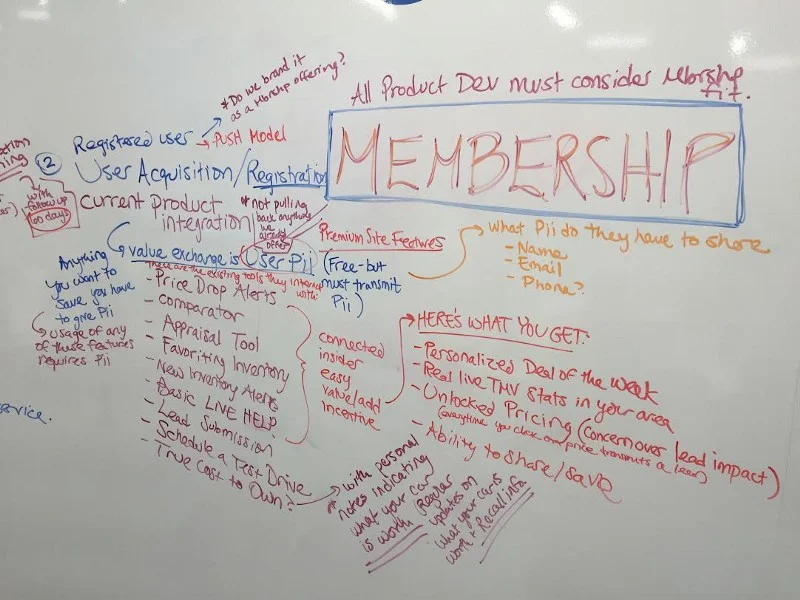 All Product Dev must consider Mbrshp
fit.
MEMBERSHIP
* Do we brand it
as a Mbrshp offering?
Registered user
→ PUSH Model
② User Acquisition/Registration
with
follow up
60 days
current product
integration
* not pulling
back anything
we
already
offer
Premium Site Features
value exchange is User Pii (Free-but
must transmit
Pii)
what Pii do they have to share
- Name
- Email
- Phone?
Anything
you want to
save you have
to give Pii
usage of any
of these features
requires Pii
These are the existing tools they interact
with:
- Price Drop Alerts
- Comparator
- Appraisal Tool
- Favoriting Inventory
- New Inventory Alerts
- Basic LIVE HELP
- Lead Submission
- Schedule a Test Drive
- True Cost to Own?
connected
insider
easy
value/add
incentive
HERE'S WHAT YOU GET:
- Personalized Deal of the week
- Real live TMV stats in your area
- Unlocked Pricing (Concern over lead impact)
(everytime you click on price transmits a lead)
- Ability to share/save
* with personal
notes indicating
what your car
is worth (Regular
updates on
what your car is
worth + Recall info
service.